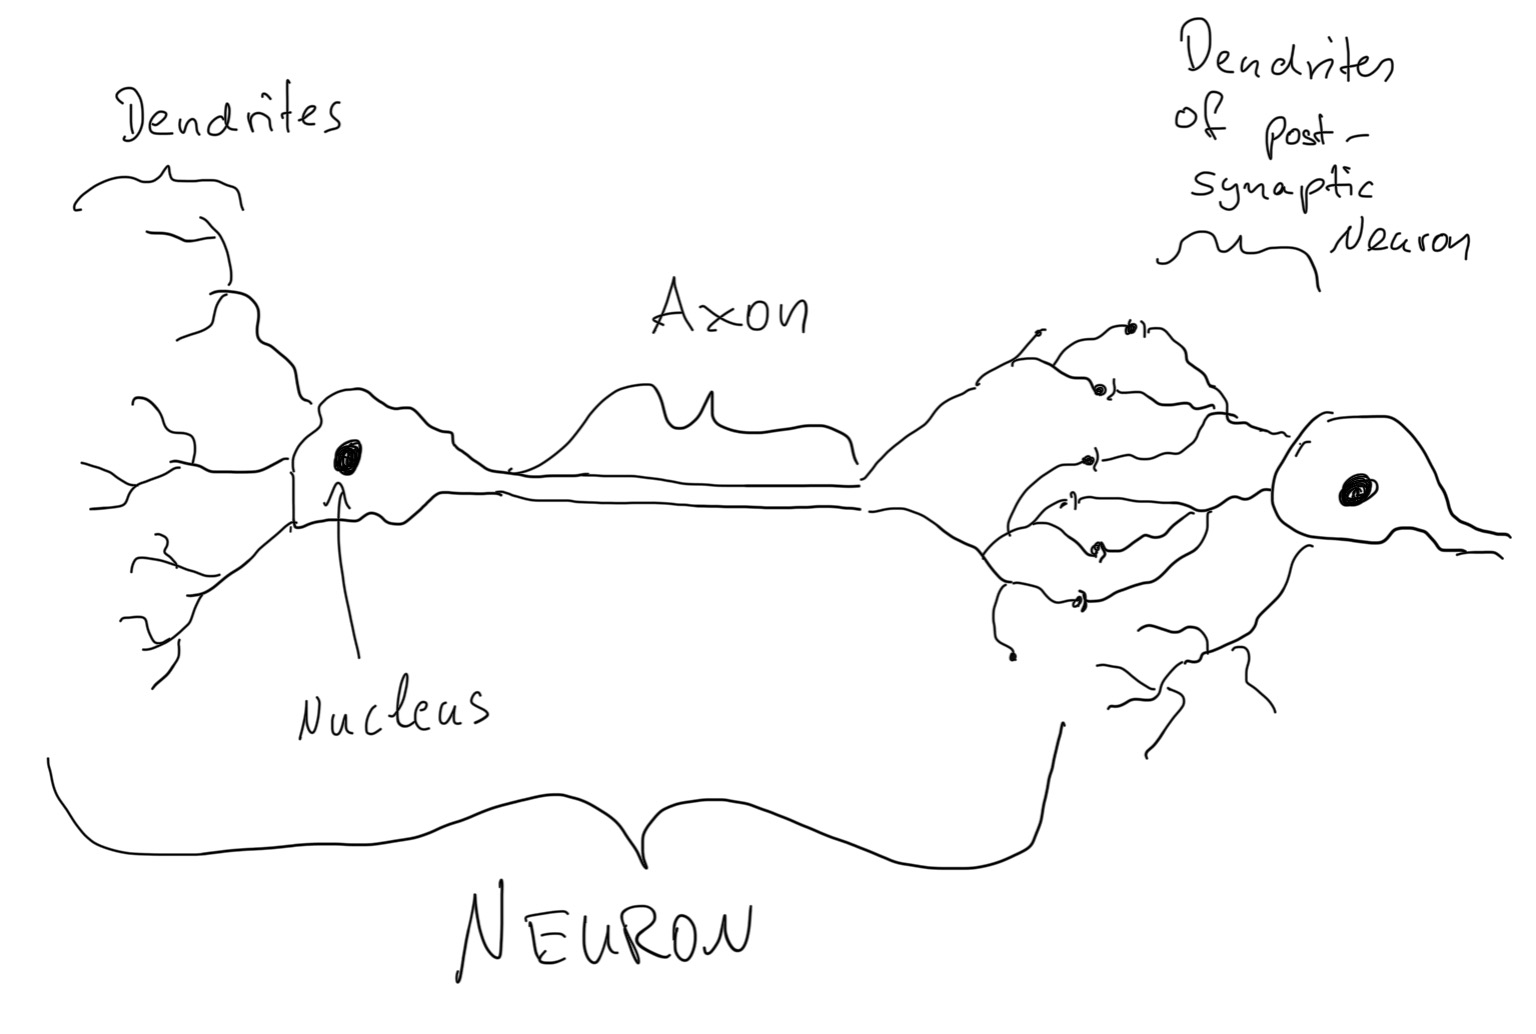 Dendrites
Dendrites
of post-
synaptic
Neuron
Axon
Nucleus
NEURON